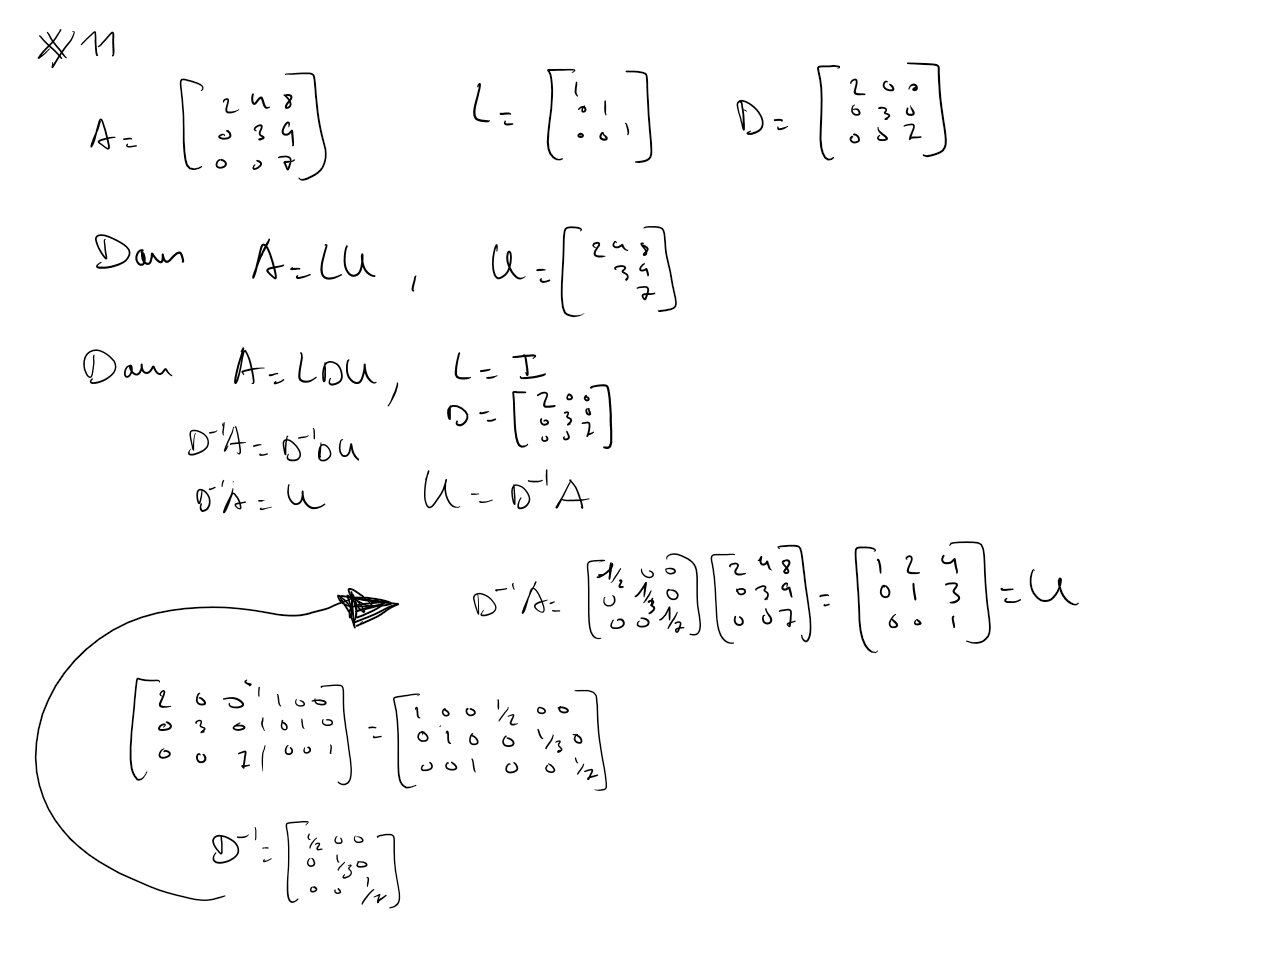 11
A = [2 4 8; 0 3 9; 0 0 7]  L = [1; 0 1; 0 0 1]  D = [2 0 0; 0 3 0; 0 0 7]
Dann A = LU, U = [2 4 8; 3 9; 7]
Dann A = LDU, L = I
D = [2 0 0; 0 3 0; 0 0 7]
D⁻¹A = D⁻¹DU
D⁻¹A = U  U = D⁻¹A
D⁻¹A = [1/2 0 0; 0 1/3 0; 0 0 1/7] [2 4 8; 0 3 9; 0 0 7] = [1 2 4; 0 1 3; 0 0 1] = U
[2 0 0 | 1 0 0; 0 3 0 | 0 1 0; 0 0 7 | 0 0 1] = [1 0 0 1/2 0 0; 0 1 0 0 1/3 0; 0 0 1 0 0 1/7]
D⁻¹ = [1/2 0 0; 0 1/3 0; 0 0 1/7]